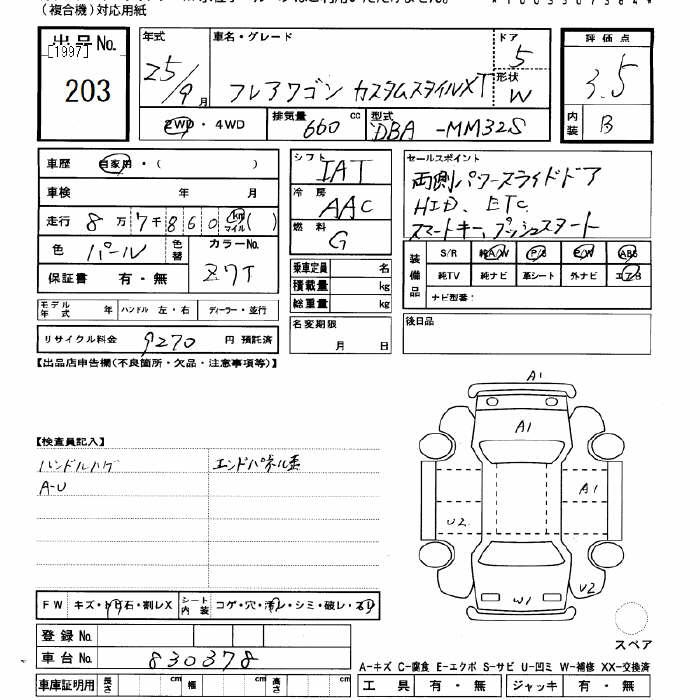 (複合機)対応用紙
出品No.
[1997]
203
年式
25/9月
車名・グレード
フレアワゴン カスタムスタイルXT
ドア
5
形状
W
2WD・4WD
排気量
660 cc
型式
DBA -MM32S
評価点
3.5
内装
B
車歴 自家用・( )
車検 年 月
走行 8万7千860km マイル( )
色 パール 色替
カラーNo.
Z7T
保証書 有・無
モデル年式 年 ハンドル 左・右 ディーラー・並行
リサイクル料金 9270 円 預託済
シフト
IAT
冷房
AAC
燃料
G
乗車定員 名
積載量 kg
総重量 kg
名変期限
月 日
セールスポイント
両側パワースライドドア
HID、ETC、
スマートキー、プッシュスタート
装備品
S/R 純A/W P/S P/W ABS
純TV 純ナビ 革シート 外ナビ エアB
ナビ型番:
後日品
【出品店申告欄(不良箇所・欠品・注意事項等)】
【検査員記入】
ハンドルハゲ エンドパネル歪
A-U
A1
A1
A1
U2
U2
W1
スペア
FW キズ・トビ石・割レX シート内装 コゲ・穴・汚レ・シミ・破レ・スリ
登録No.
車台No. 830378
車庫証明用 長さ cm 幅 cm 高さ cm
A-キズ C-腐食 E-エクボ S-サビ U-凹ミ W-補修 XX-交換済
工具 有・無 ジャッキ 有・無